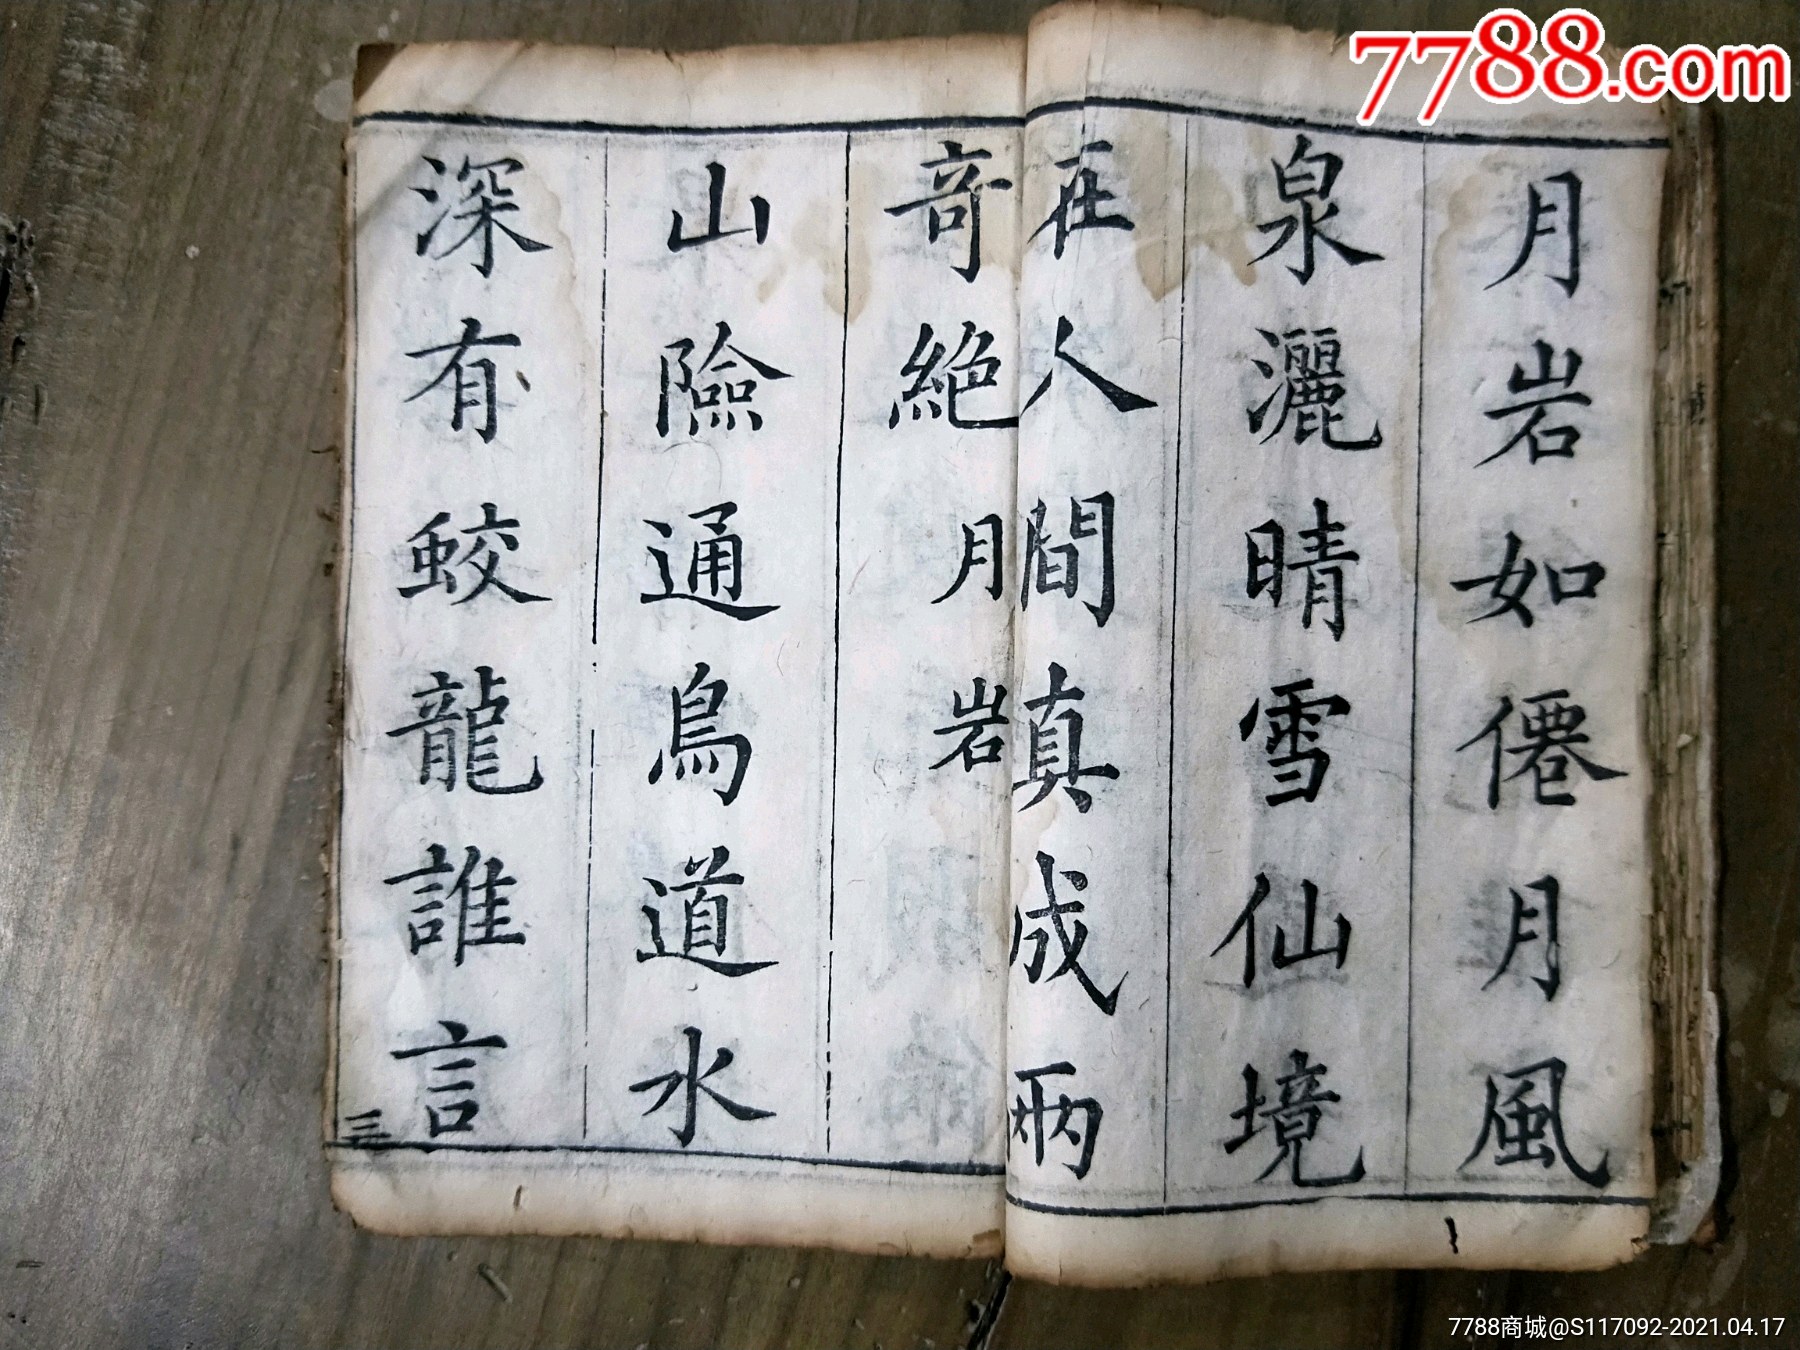 7788.com
月岩如僊月風
泉灑晴雪仙境
在人間真成兩
奇絕月岩
山險通鳥道水
深有蛟龍誰言
三
7788商城@S117092-2021.04.17